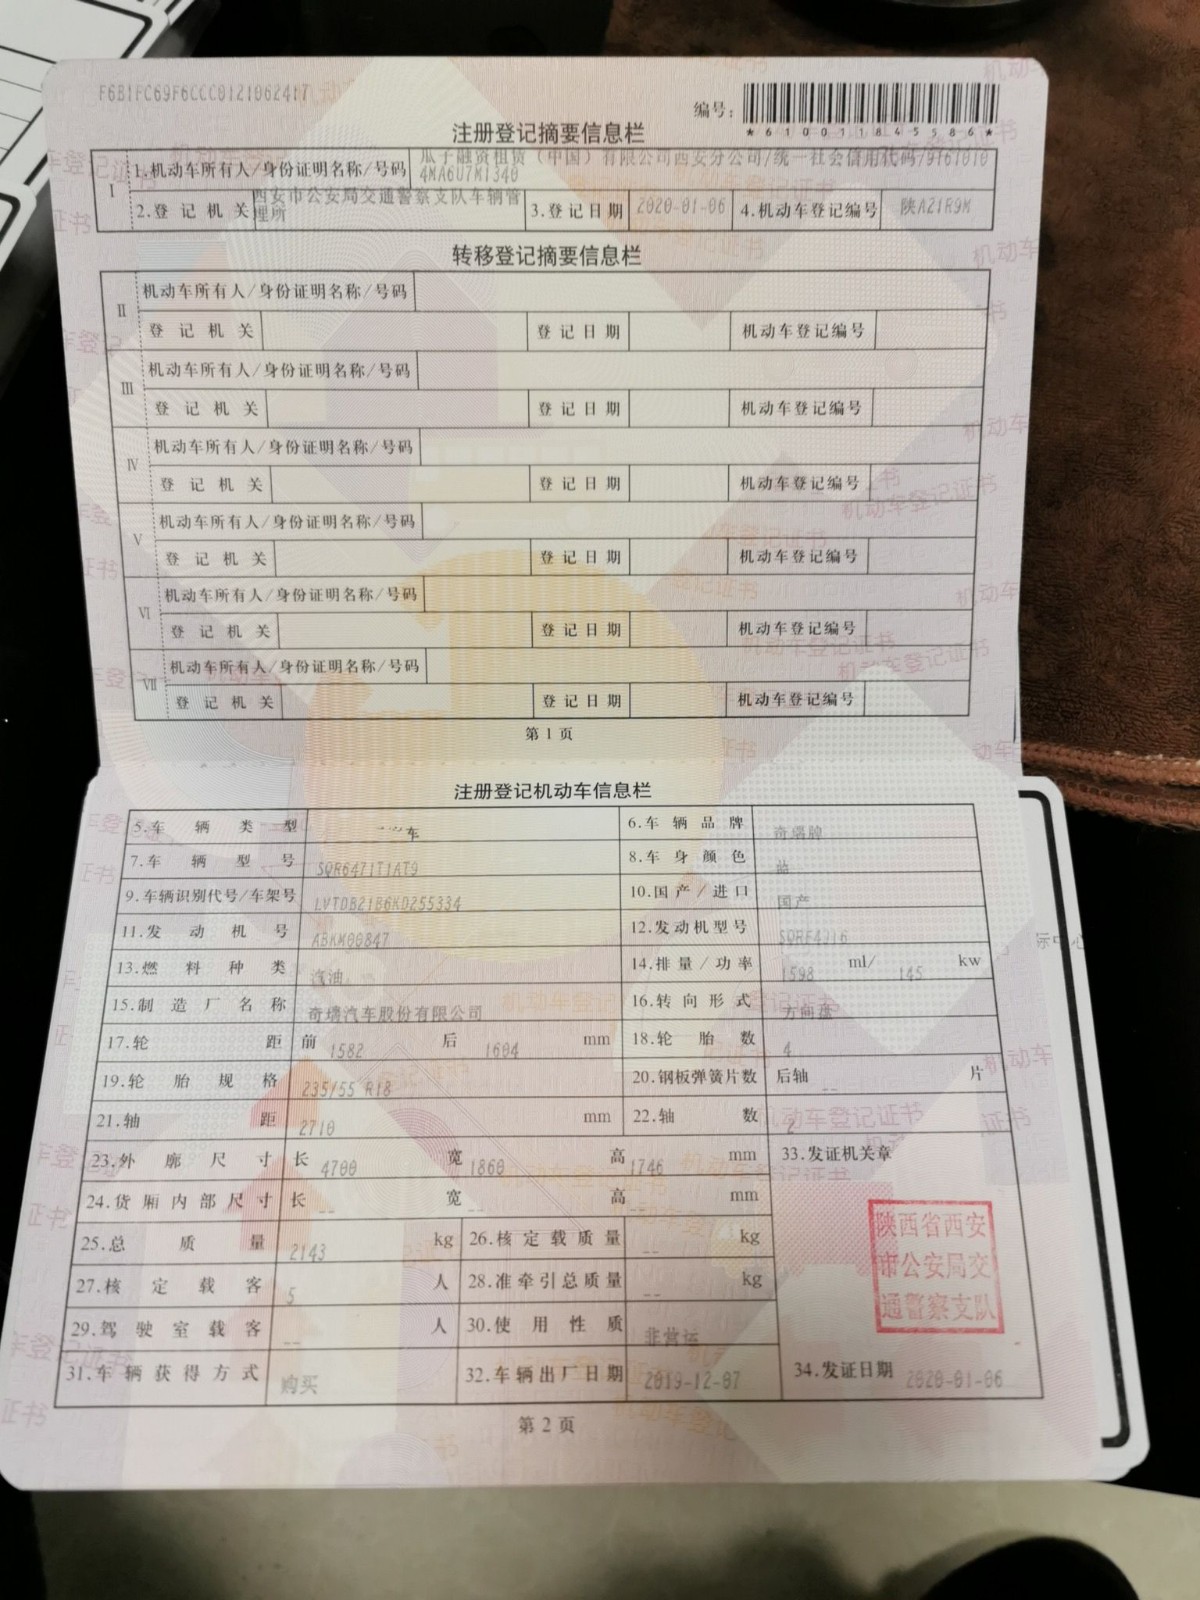 F6B1FC69F6CCC0121062417
编号:
*610011845586*
注册登记摘要信息栏
I
1.机动车所有人/身份证明名称/号码 瓜子融资租赁(中国)有限公司西安分公司/统一社会信用代码/9161010
4MA6U7M1340
2.登记机关 西安市公安局交通警察支队车辆管理所 3.登记日期 2020-01-06 4.机动车登记编号 陕AZ1R9M
转移登记摘要信息栏
II 机动车所有人/身份证明名称/号码
登记机关 登记日期 机动车登记编号
III 机动车所有人/身份证明名称/号码
登记机关 登记日期 机动车登记编号
IV 机动车所有人/身份证明名称/号码
登记机关 登记日期 机动车登记编号
V 机动车所有人/身份证明名称/号码
登记机关 登记日期 机动车登记编号
VI 机动车所有人/身份证明名称/号码
登记机关 登记日期 机动车登记编号
VII 机动车所有人/身份证明名称/号码
登记机关 登记日期 机动车登记编号
第1页
注册登记机动车信息栏
5.车辆类型 车 6.车辆品牌 奇瑞牌
7.车辆型号 SQR6471T1AT9 8.车身颜色
9.车辆识别代号/车架号 LVTDB21B6KD255334 10.国产/进口 国产
11.发动机号 ABKM00847 12.发动机型号 SQRF4J16
13.燃料种类 汽油 14.排量/功率 1598 ml/ 145 kw
15.制造厂名称 奇瑞汽车股份有限公司 16.转向形式 方向盘
17.轮距 前 1582 后 1604 mm 18.轮胎数 4
19.轮胎规格 235/55 R18 20.钢板弹簧片数 后轴 -- 片
21.轴距 2710 mm 22.轴数 2
23.外廓尺寸 长 4700 宽 1860 高 1746 mm 33.发证机关章
24.货厢内部尺寸 长 -- 宽 -- 高 -- mm
25.总质量 2143 kg 26.核定载质量 -- kg
27.核定载客 5 人 28.准牵引总质量 -- kg
29.驾驶室载客 -- 人 30.使用性质 非营运
31.车辆获得方式 购买 32.车辆出厂日期 2019-12-07 34.发证日期 2020-01-06
陕西省西安
市公安局交
通警察支队
第2页